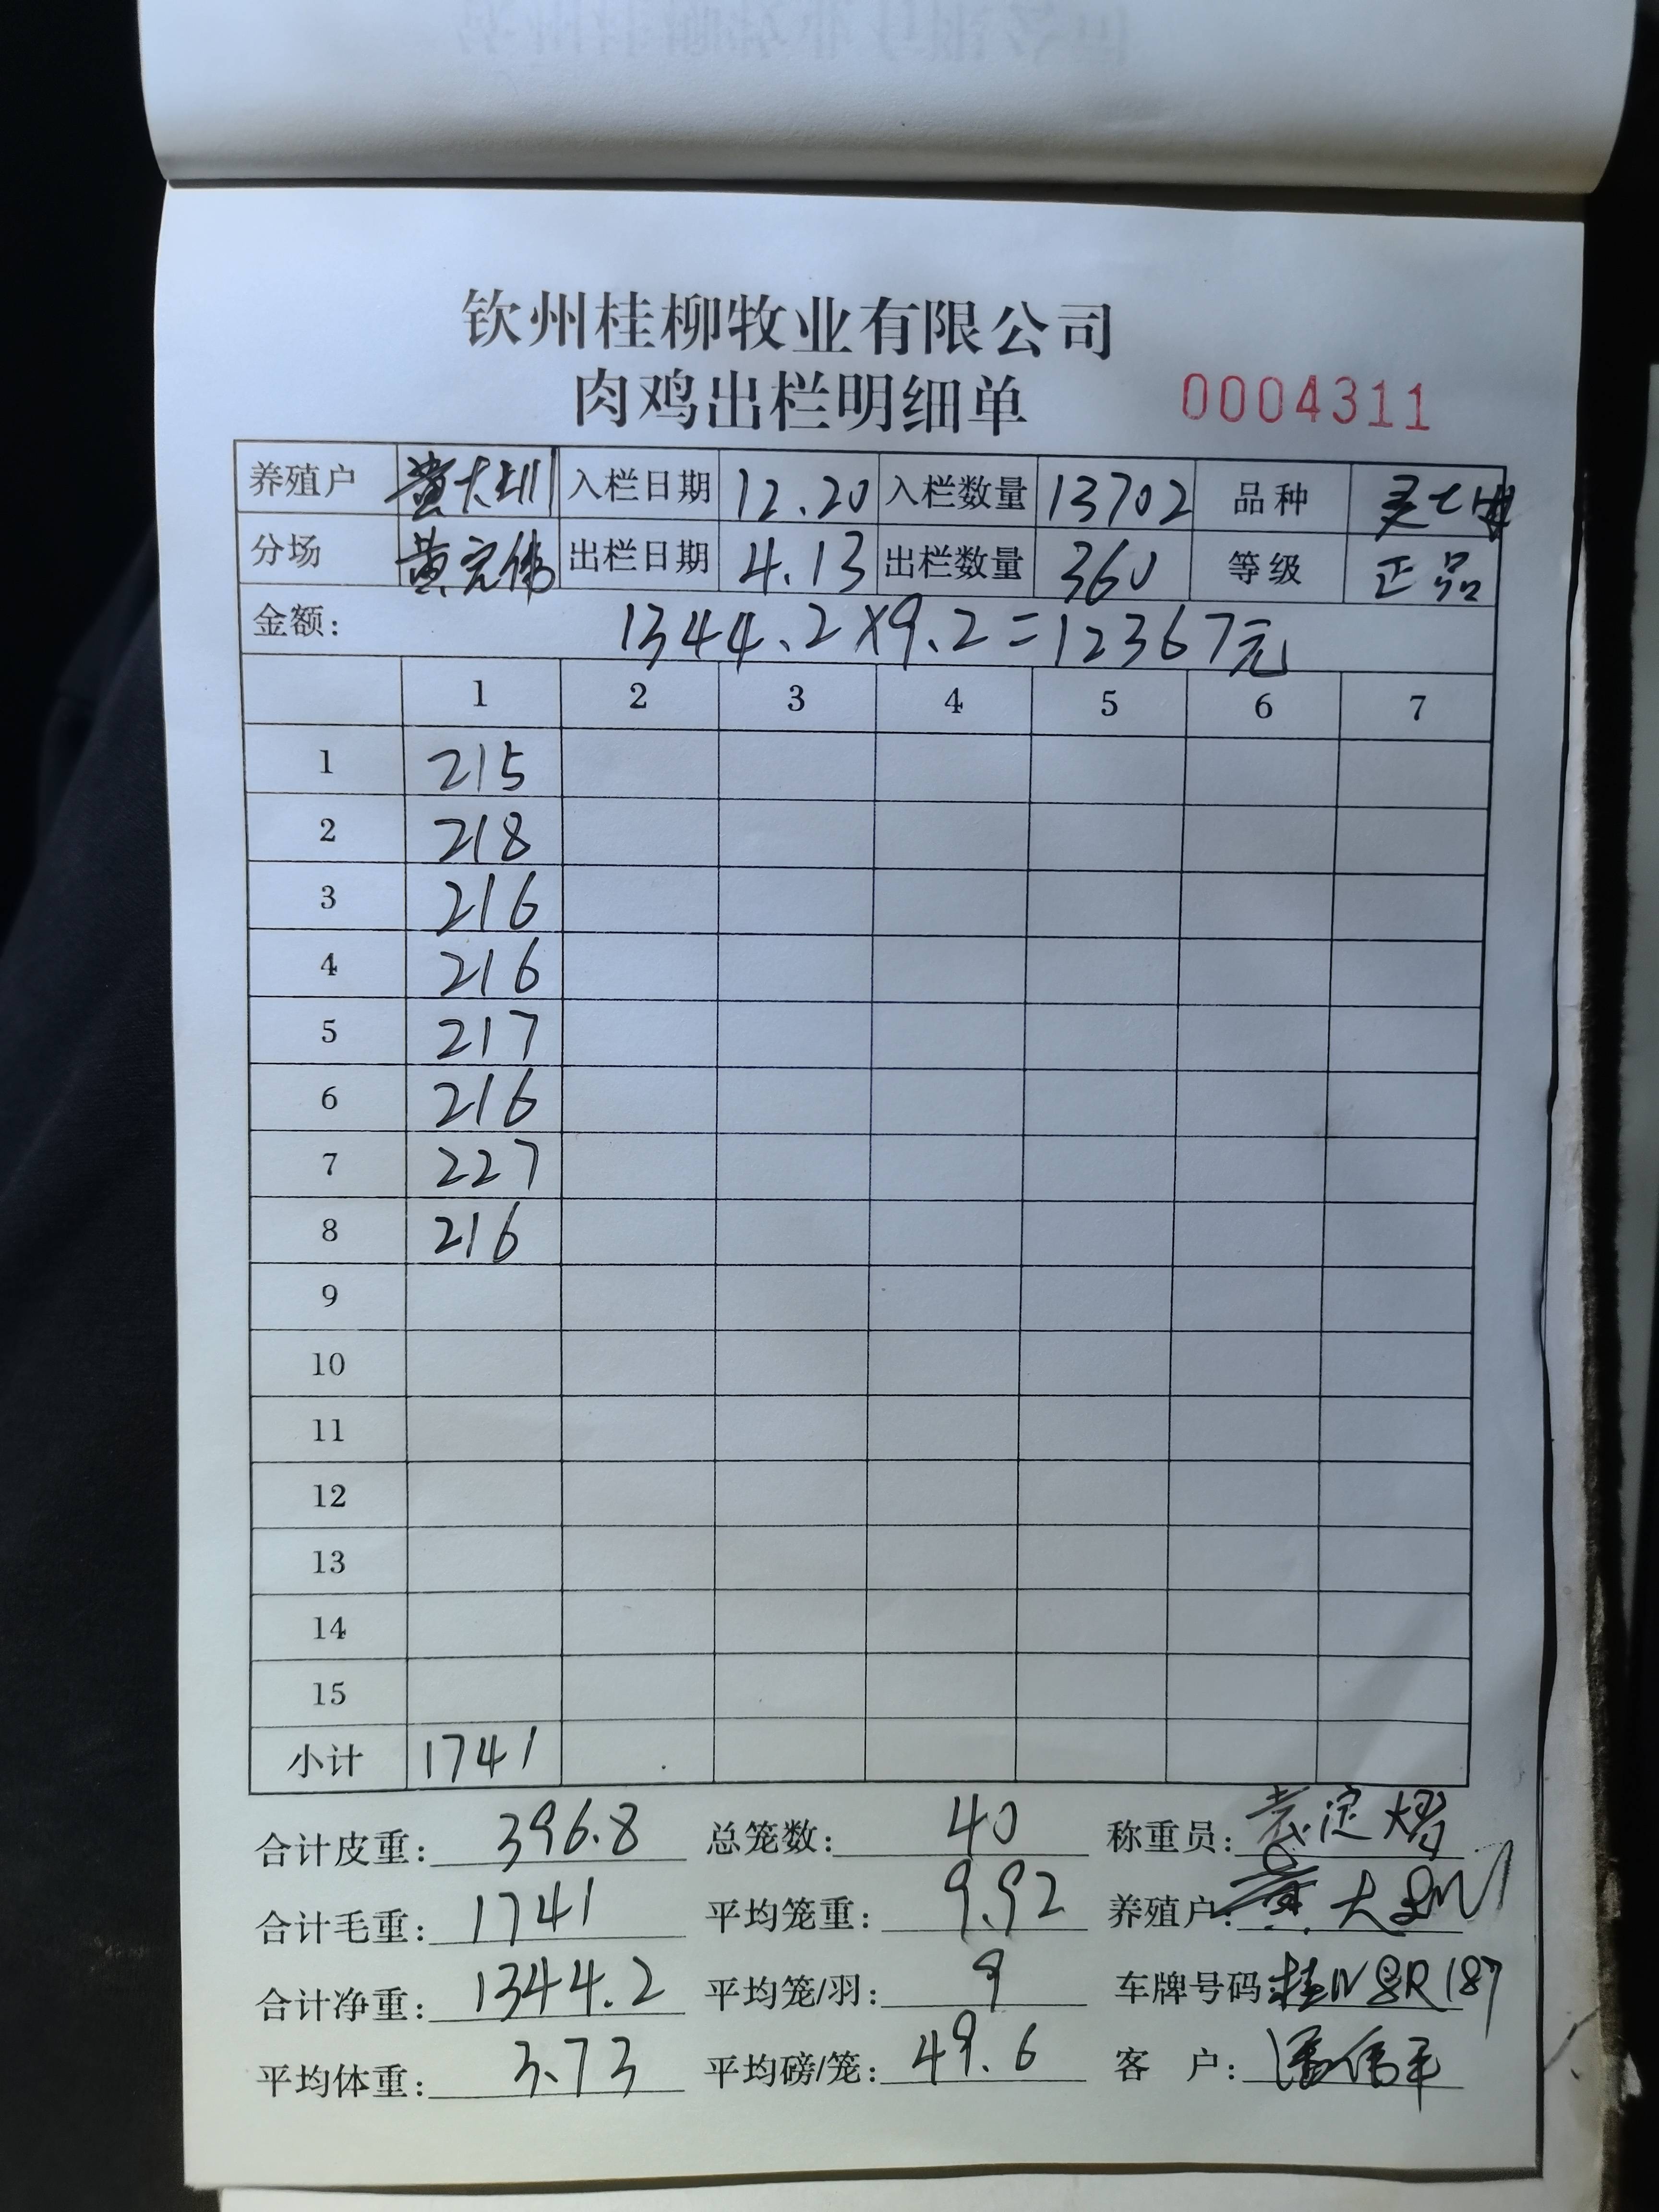 钦州桂柳牧业有限公司
肉鸡出栏明细单 0004311
养殖户 黄大圳 入栏日期 12.20 入栏数量 13702 品种
分场 黄宏伟 出栏日期 4.13 出栏数量 360 等级 正品
金额: 1344.2×9.2=12367元
1 2 3 4 5 6 7
1 215
2 218
3 216
4 216
5 217
6 216
7 227
8 216
9
10
11
12
13
14
15
小计 1741
合计皮重: 396.8 总笼数: 40 称重员:
合计毛重: 1741 平均笼重: 9.92 养殖户: 黄大圳
合计净重: 1344.2 平均笼/羽: 9 车牌号码 桂N8R187
平均体重: 3.73 平均磅/笼: 49.6 客户: 潘伟平